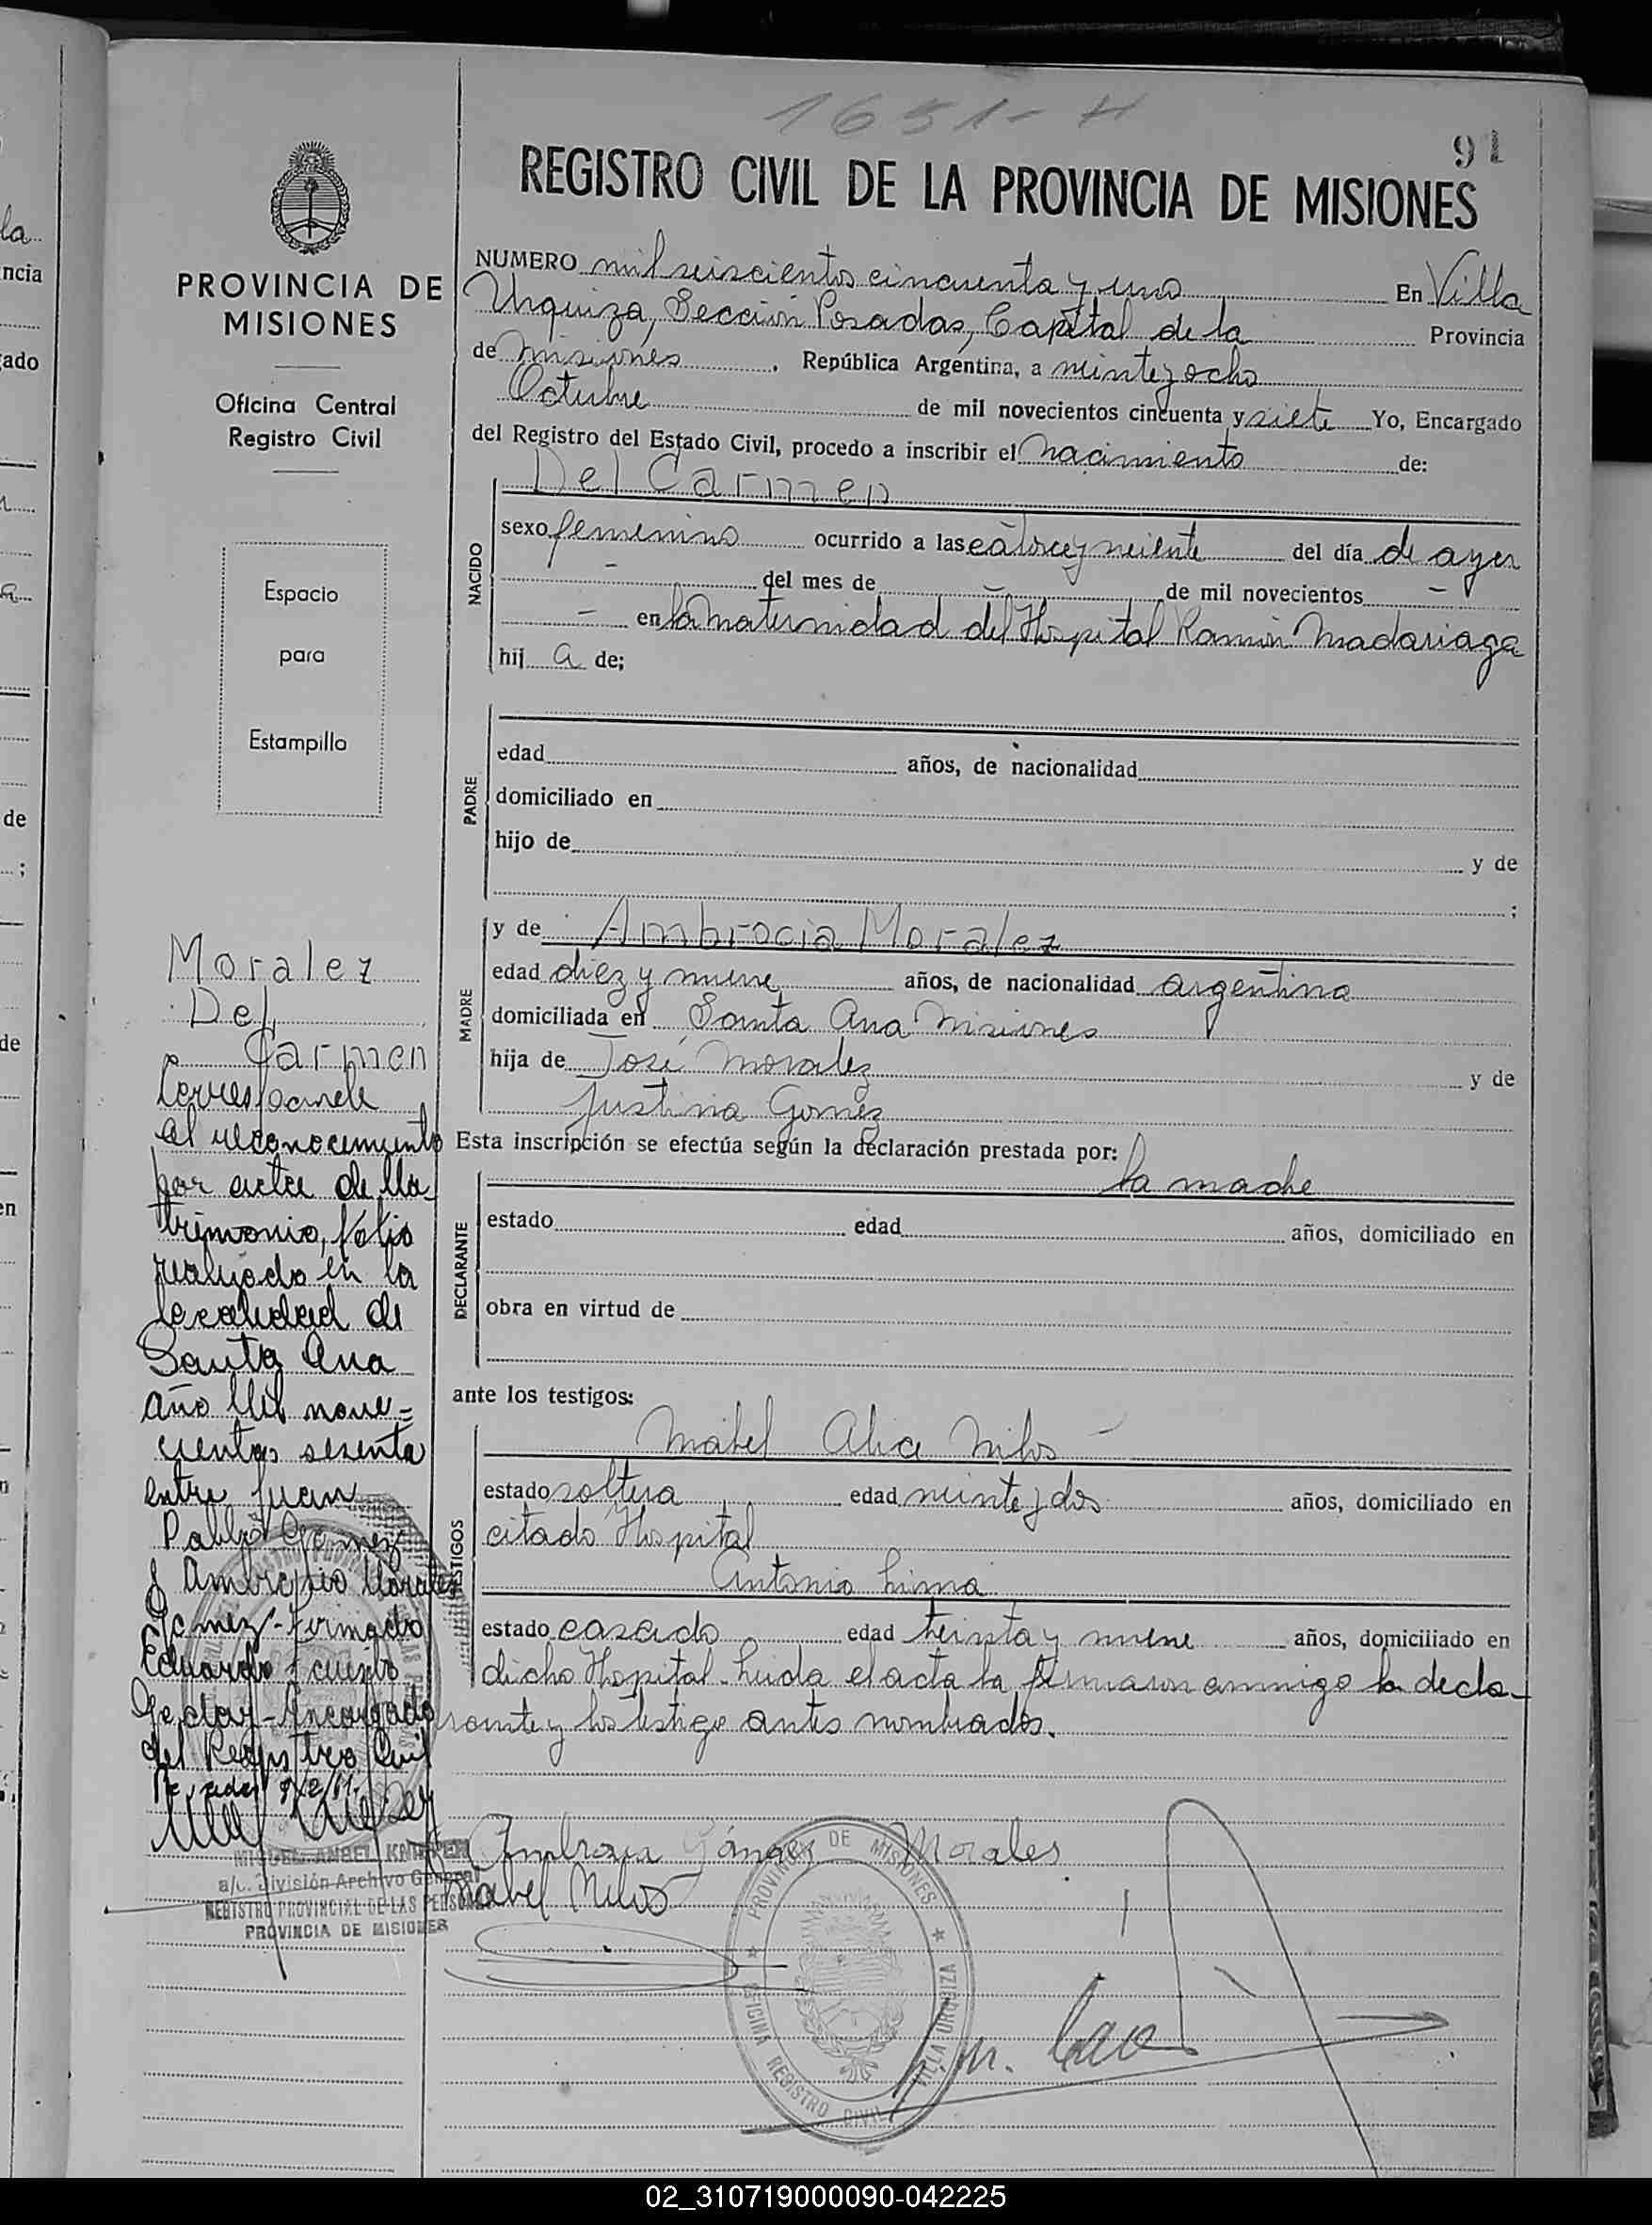 1651-H
91
REGISTRO CIVIL DE LA PROVINCIA DE MISIONES
PROVINCIA DE
MISIONES
Oficina Central
Registro Civil
Espacio
para
Estampillo
NUMERO mil seiscientos cincuenta y uno En Villa
Urquiza, Sección Posadas, Capital de la Provincia
de Misiones. República Argentina, a veinte y ocho
Octubre de mil novecientos cincuenta y siete Yo, Encargado
del Registro del Estado Civil, procedo a inscribir el nacimiento de:
NACIDO
Del Carmen
sexo femenino ocurrido a las catorce y veinte del día de ayer
- del mes de - de mil novecientos -
- en la maternidad del Hospital Ramón Madariaga
hij a de;
PADRE
edad años, de nacionalidad
domiciliado en
hijo de y de
;
MADRE
y de Ambrocia Moralez
edad diez y nueve años, de nacionalidad argentina
domiciliada en Santa Ana Misiones
hija de José Moralez y de
Justina Gomez
Esta inscripción se efectúa según la declaración prestada por:
la madre
DECLARANTE
estado edad años, domiciliado en
obra en virtud de
ante los testigos:
TESTIGOS
Mabel Alica Nilos
estado soltera edad veinte y dos años, domiciliado en
citado Hospital
Antonio Lima
estado casado edad treinta y nueve años, domiciliado en
dicho Hospital. Leida el acta la firmaron conmigo la decla-
rante y los testigo antes nombrados.
Moralez
Del
Carmen
Corresponde
al reconocimiento
por acta de Ma
trimonio, folio
realizado en la
localidad de
Santa Ana
año Mil nove=
cientos sesenta
entre Juan
Pablo Gomez
y Ambrosia Morales
Gomez - Firmado
Eduardo
Encargado
del Registro Civil
Posadas 9/2/61.
MIGUEL ANGEL
a/c. División Archivo General
REGISTRO PROVINCIAL DE LAS PERSONAS
PROVINCIA DE MISIONES
Ambrosia Gómez Morales
Mabel Nilos
PROVINCIA DE MISIONES
OFICINA REGISTRO CIVIL
VILLA URQUIZA
02_310719000090-042225